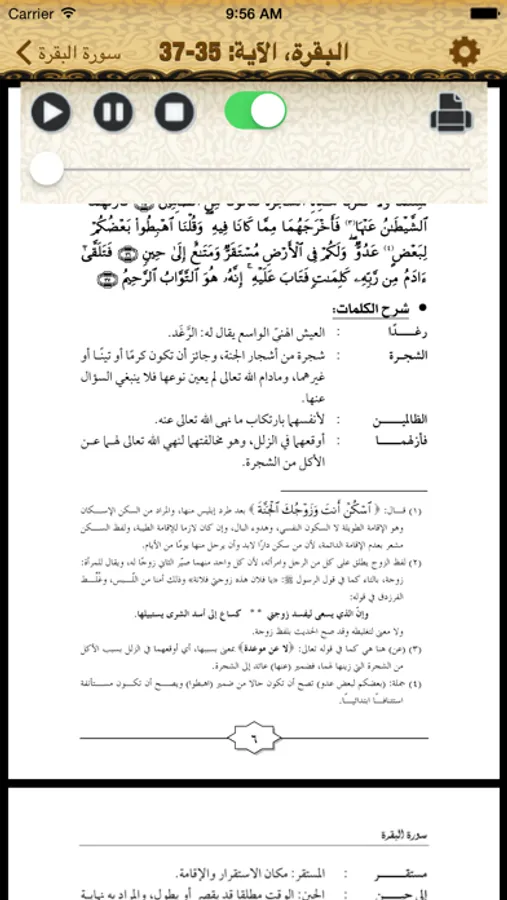 Carrier 9:56 AM
سورة البقرة
البقرة، الآية: 35-37
ٱلشَّيْطَٰنُ عَنْهَا (٣) فَأَخْرَجَهُمَا مِمَّا كَانَا فِيهِ ۖ وَقُلْنَا ٱهْبِطُوا۟ بَعْضُكُمْ
لِبَعْضٍ (٤) عَدُوٌّ ۖ وَلَكُمْ فِى ٱلْأَرْضِ مُسْتَقَرٌّ وَمَتَٰعٌ إِلَىٰ حِينٍ ﴿٣٦﴾ فَتَلَقَّىٰٓ
ءَادَمُ مِن رَّبِّهِۦ كَلِمَٰتٍ فَتَابَ عَلَيْهِ ۚ إِنَّهُۥ هُوَ ٱلتَّوَّابُ ٱلرَّحِيمُ ﴿٣٧﴾
• شرح الكلمات:
رغـــدًا : العيش الهنيّ الواسع يقال له: الرَّغَد.
الشجـرة : شجرة من أشجار الجنة، وجائز أن تكون كرمًا أو تينًا أو
غيرهما، ومادام الله تعالى لم يعين نوعها فلا ينبغي السؤال
عنها.
الظالميـــن : لأنفسهما بارتكاب ما نهى الله تعالى عنه.
فأزلهمـــا : أوقعهما في الزلل، وهو مخالفتهما لنهي الله تعالى لهما عـن
الأكل من الشجرة.
(١) قـال: ﴿ ٱسْكُنْ أَنتَ وَزَوْجُكَ ٱلْجَنَّةَ ﴾ بعد طرد إبليس منها، والمراد من السكن الإسكان
وهو الإقامة الطويلة لا السكون النفسي، وهدوء البال، وإن كان لازما للإقامة الطيبة، ولفظ السكـن
مشعر بعدم الإقامة الدائمة، لأن من سكن دارًا لابد وأن يرحل منها يومًا من الأيام.
(٢) لفظ الزوج يطلق على كل من الرجل وامرأته، لأن كل واحد منهما صيّر الثاني زوجًا له، ويقال للمرأة:
زوجة، بالتاء كما في قول الرسول ﷺ: «يا فلان هذه زوجتي فلانة» وذلك أمنا من اللَّـبس، وغُلِّـط
الفرزدق في قوله:
وإنّ الذي يسعى ليفسد زوجتي ** كساع إلى أسد الشرى يستبيلها.
ولا معنى لتغليطه وقد صح الحديث بلفظ زوجة.
(٣) (عن) هنا هي كما في قوله تعالى: ﴿لا عن موعدة﴾ بمعنى بسببها، أي أوقعهما في الزلل بسبب الأكل
من الشجرة التي زينها لهما، فضمير (عنها) عائد إلى الشجرة.
(٤) جملة: (بعضكم لبعض عدو) تصح أن تكون حالا من ضمير (اهبطوا) ويصـح أن تكـون مستـأنفة
استئنافًـا ابتدائيًـا.
٦
سورة البقرة
مستقــــر : المستقر: مكان الاستقرار والإقامة.
إلى حـــن : الحين: الوقت مطلقا قد يقصر أو يطول، والمراد به نهاية